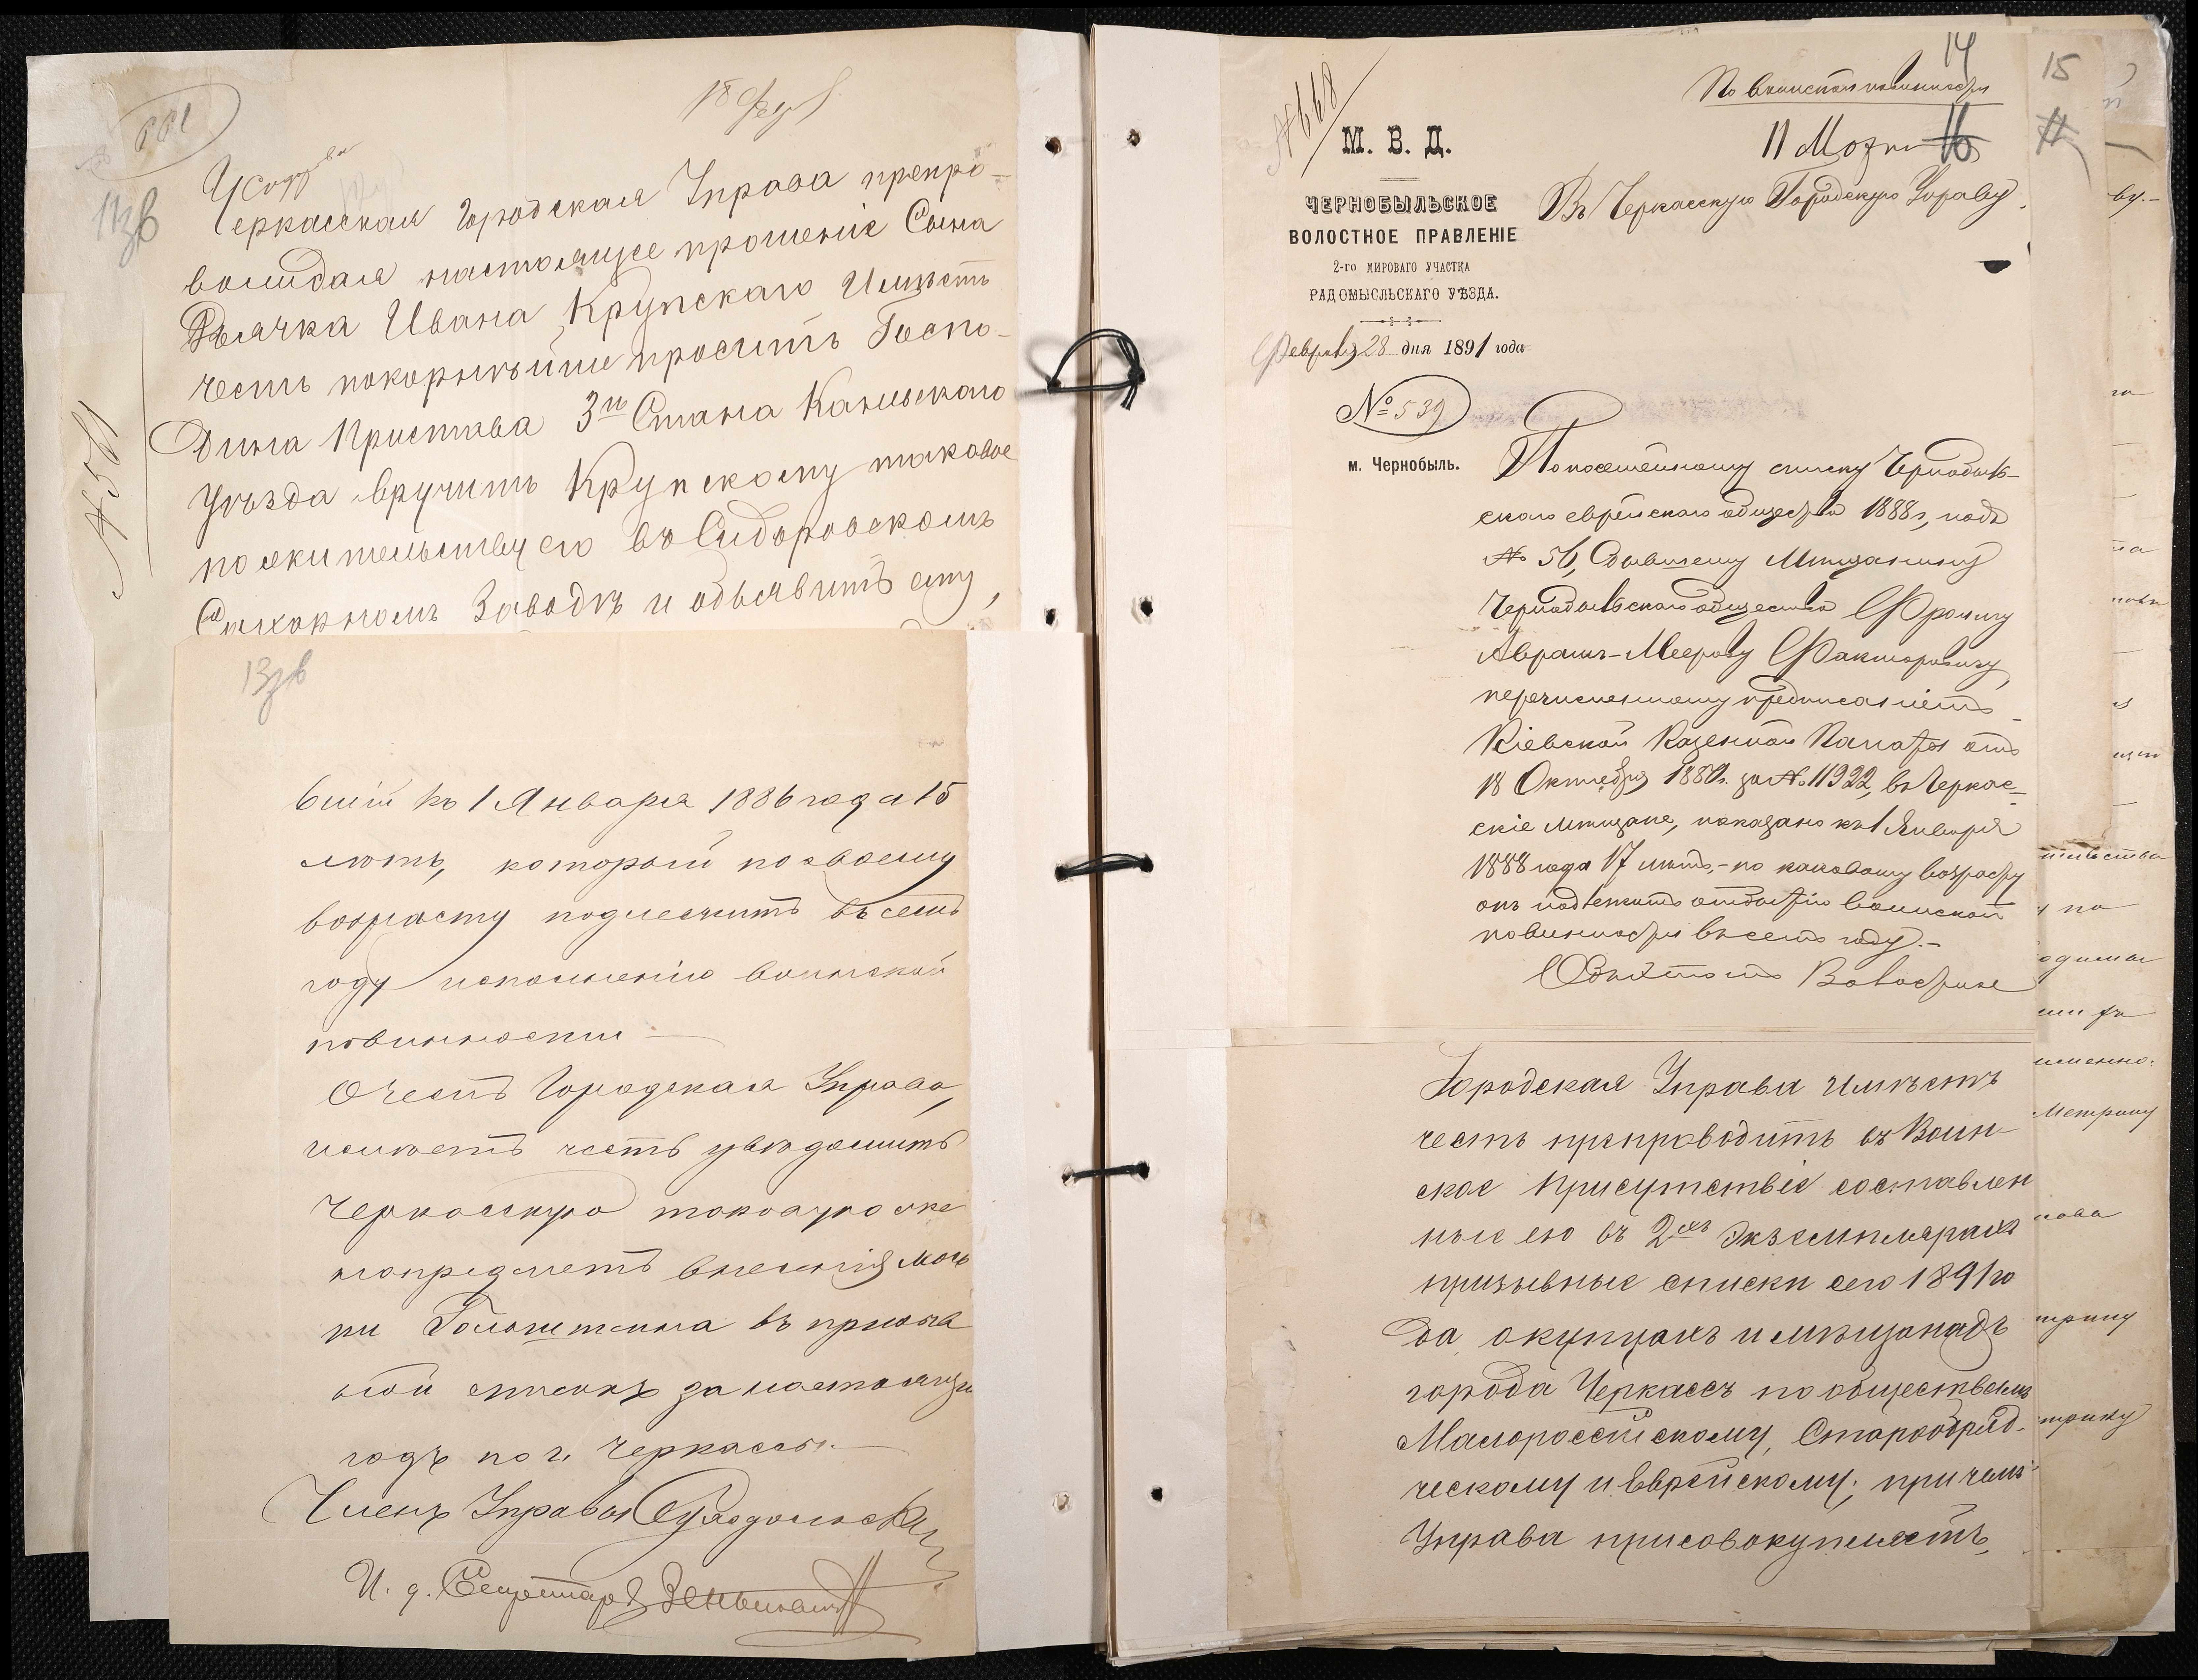 18 Февр
Черкасская Городская Управа препро-
вождая настоящее прошеніе Сына
Дьячка Ивана Крупскаго Имѣетъ
честь покорнѣйше просить Госпо-
дина Пристава 3го Стана Каневскаго
Уѣзда вручить Крупскому таковое
по жительству его въ Сидоровскомъ
Сахарномъ Заводѣ и объявить ему,
№ 551
13зв
вшій къ 1 Января 1886 года 15
лѣтъ, который по своему
возрасту подлежитъ въ семъ
году исполненію воинской
повинности —
О чемъ Городская Управа,
имѣетъ честь увѣдомить
Черкасскую таковую же
на предметъ внесенія
въ призыв
ной списокъ за настоящій
годъ по г. Черкассы.—
Членъ Управы
И. д. Секретаря
14
№ 668
По воинской повинности
М. В. Д.
11 Марта 16
ЧЕРНОБЫЛЬСКОЕ
ВОЛОСТНОЕ ПРАВЛЕНІЕ
2-го МИРОВАГО УЧАСТКА
РАДОМЫСЛЬСКАГО УѢЗДА.
Въ Черкасскую Городскую Управу.
Февраля 28 дня 1891 года
№ 539
м. Чернобыль.
По посемейному списку Чернобыль-
скаго еврейскаго общества 1888 г., подъ
№ 56, бывшему Мѣщанину
Чернобыльскаго общества Фроиму
Аврамъ-Меерову Факторовичу,
перечисленному предписаніемъ
Кіевской Казенной Палаты отъ
18 Октября 1889 г. за № 11922, въ Черкас-
скіе мѣщане, показано къ 1 Января
1888 года 17 лѣтъ,- по каковому возрасту
онъ подлежитъ отбытію воинской
повинности въ семъ году.-
Волостное
Городская Управа Имѣетъ
честь препроводить въ Воин-
ское Присутствіе составлен
ные ею въ 2хъ Экземплярахъ
призывные списки сего 1891 го
да о купцахъ и мѣщанахъ
города Черкассъ по обществамъ
Малороссійскому, Старообряд-
ческому и Еврейскому; причемъ
Управа присовокупляетъ,
15
11
ву.-
тельства
и по
именно:
Метрику